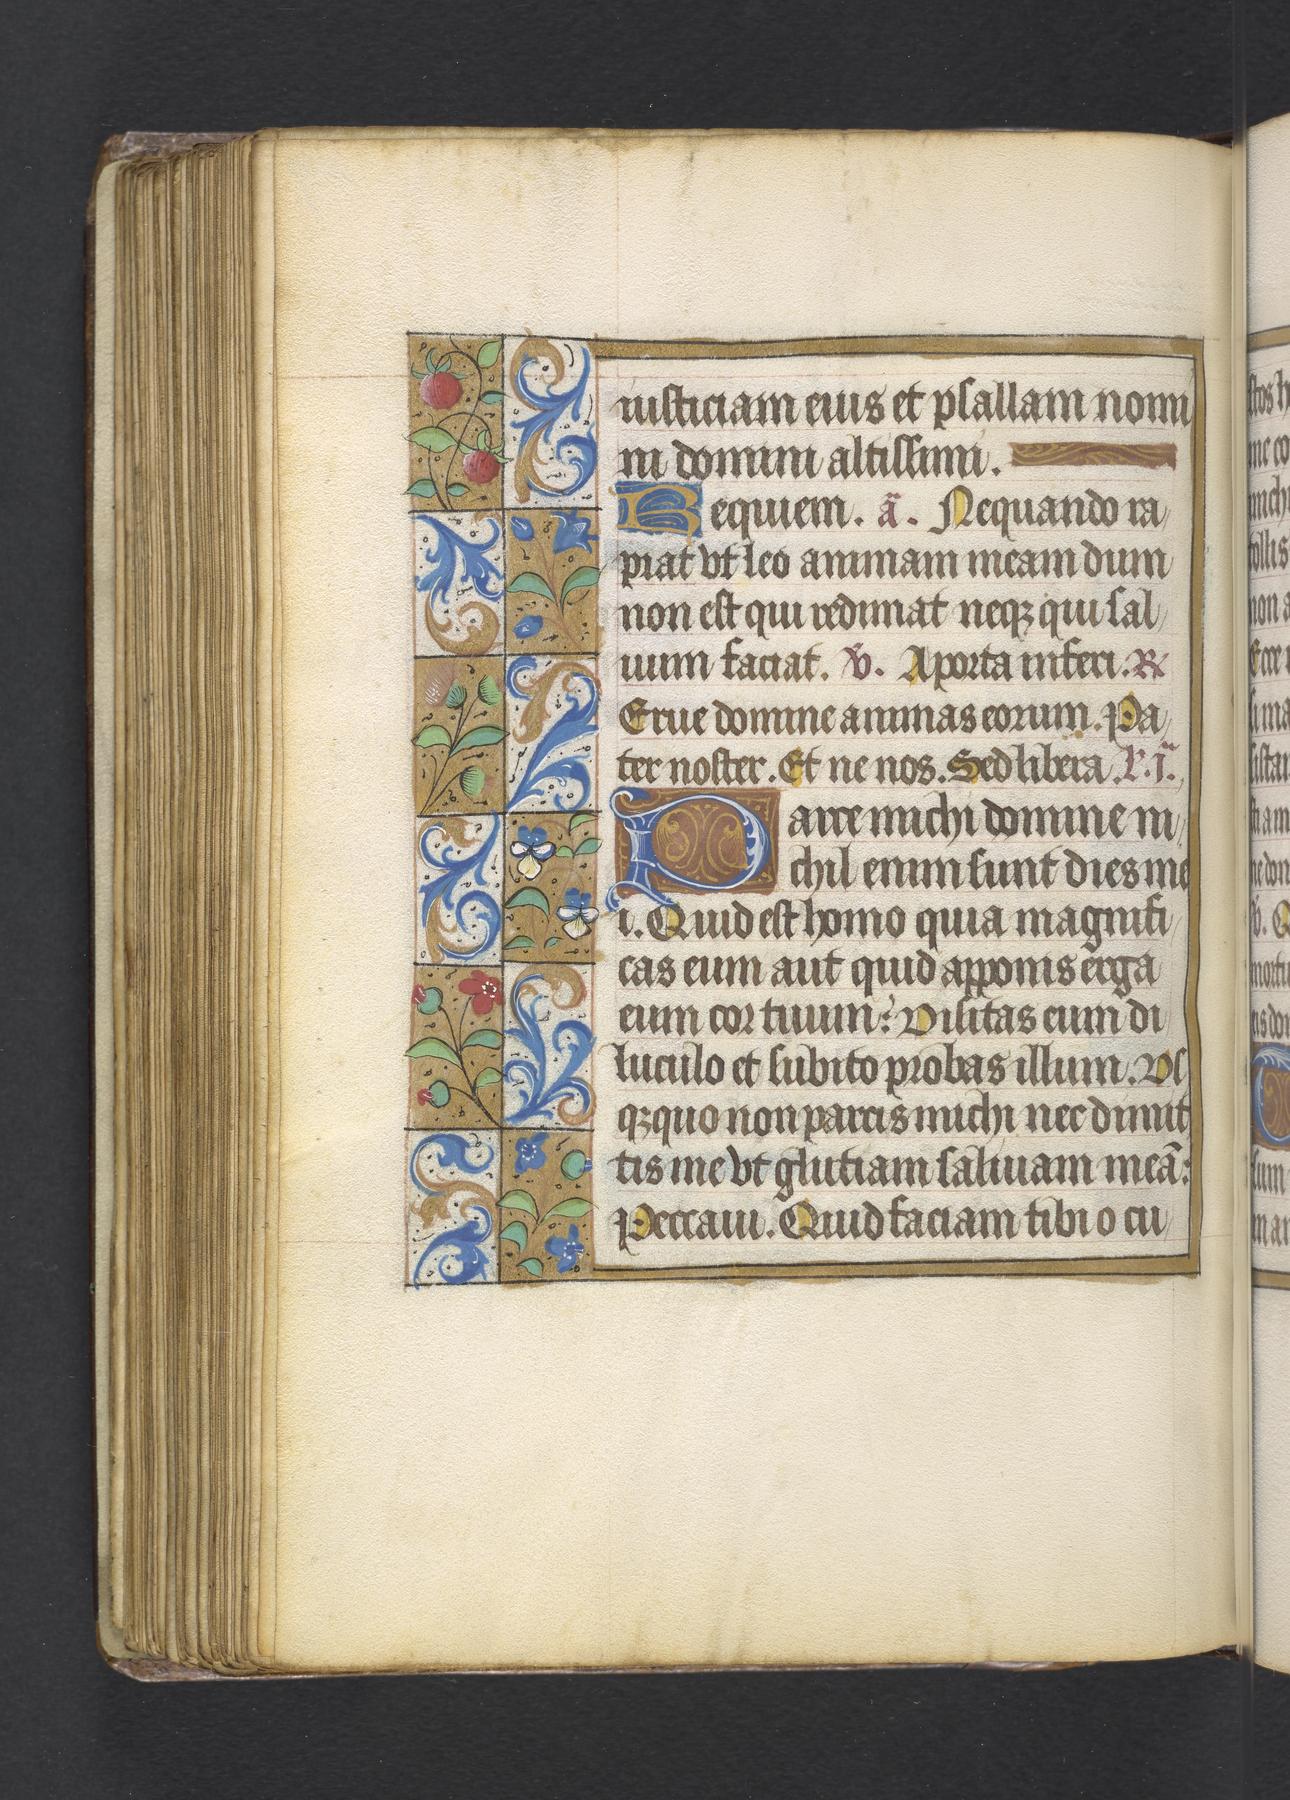 iusticiam eius et psallam nomi
ni domini altissimi.
Requiem. ā. Nequando ra
piat vt leo animam meam dum
non est qui redimat neqꝫ qui sal
uum faciat. ℣. A porta inferi. ℟
Erue domine animas eorum. Pa
ter noster. Et ne nos. Sed libera. l. j.
Parce michi domine ni
chil enim sunt dies me
i. Quid est homo quia magnifi
cas eum aut quid apponis erga
eum cor tuum? Visitas eum di
luculo et subito probas illum. Vs
qꝫquo non parcis michi nec dimit
tis me vt glutiam saliuam meā:
Peccaui. Quid faciam tibi o cu